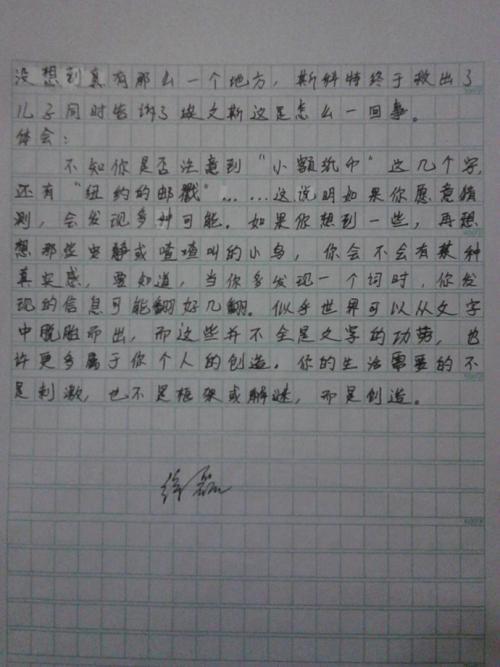 没想到真有那么一个地方，斯科特终于救出了
儿子同时告诉了埃文斯这是怎么一回事。
体会：
不知你是否注意到“小额纸币”这几个字，
还有“纽约的邮戳”……这说明如果你愿意猜
测，会发现多种可能。如果你想到一些，再想
想那些安静或喳喳叫的小鸟，你会不会有某种
真实感，要知道，当你多发现一个词时，你发
现的信息可能翻好几翻。似乎世界可以从文字
中脱胎而出，而这些并不全是文字的功劳，也
许更多属于你个人的创造。你的生活需要的不
是刺激，也不是框架或解谜，而是创造。